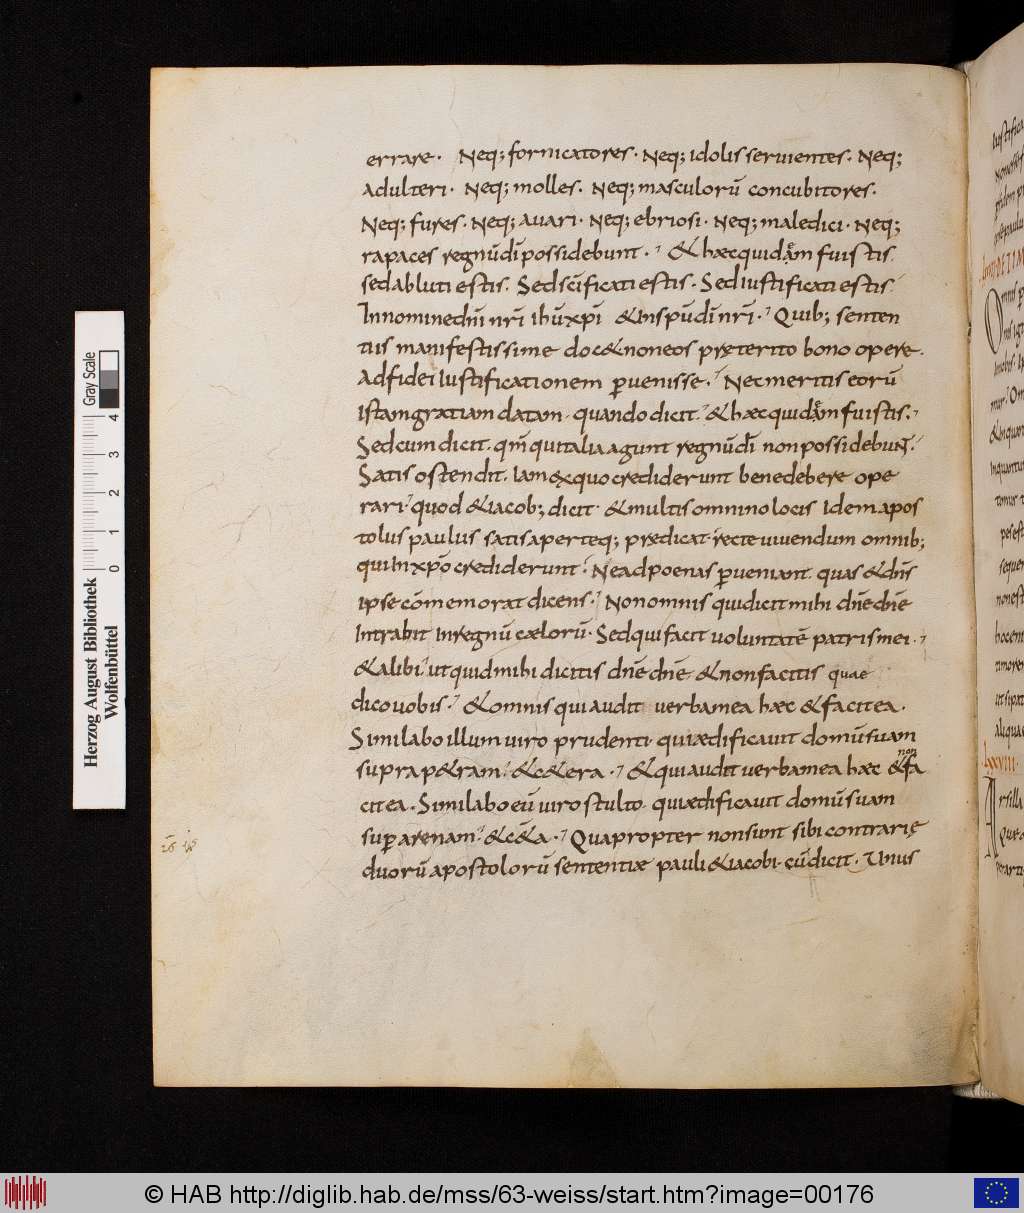 errare. Neq; fornicatores. Neq; idolis seruientes. Neq;
adulteri. Neq; molles. Neq; masculorū concubitores.
Neq; fures. Neq; auari. Neq; ebriosi. Neq; maledici. Neq;
rapaces regnū dī possidebunt. & haec quidam fuistis.
sed abluti estis. Sed scīficati estis. Sed iustificati estis
In nomine dnī nrī ihū xpī & in spū dī nrī. Quib; senten
tiis manifestissime doc& non eos pręterito bono opere.
Ad fidei iustificationem puenisse. Nec meritis eorū
istam gratiam datam. quando dicit. & haec quidam fuistis.
Sed cum dicit. qm̄ qui talia agunt regnū dī non possidebunt.
Satis ostendit. Iam ex quo crediderunt bene debere ope
rari. quod & iacob; dicit. & multis omnino locis idem apos
tolus paulus satis aperteq; predicat. recte uiuendum omnib;
qui in xpō crediderunt. Ne ad poenas pueniant. quas & dn̄s
ipse cōmemorat dicens. Non omnis qui dicit mihi dn̄e dn̄e
Intrabit in regnū cælorū. Sed qui facit uoluntatē patris mei.
& alibi. ut quid mihi dicitis dn̄e dn̄e & non facitis quae
dico uobis. & omnis qui audit uerba mea haec & facit ea.
Similabo illum uiro prudenti. qui ædificauit domū suam
supra p&ram. & c&era. & qui audit uerba mea haec & non fa
cit ea. Similabo eū uiro stulto. qui ædificauit domū suam
sup arenam. & c&a. Quapropter non sunt sibi contrarię
duorū apostolorū sententiæ pauli & iacobi. cū dicit. Unus
Herzog August Bibliothek
Wolfenbüttel
0 1 2 3 4
Gray Scale
© HAB http://diglib.hab.de/mss/63-weiss/start.htm?image=00176